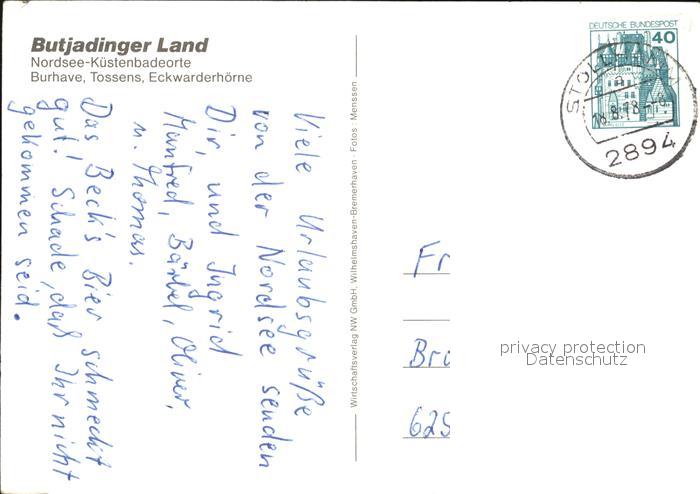 Butjadinger Land
Nordsee-Küstenbadeorte
Burhave, Tossens, Eckwarderhörne
Viele Urlaubsgrüße
von der Nordsee senden
Dir, und Ingrid
Manfred, Bärbel, Oliver,
u. Thomas.
Das Beck's Bier schmeckt
gut! Schade, daß Ihr nicht
gekommen seid.
Wirtschaftsverlag NW GmbH, Wilhelmshaven-Bremerhaven · Fotos: Menssen
DEUTSCHE BUNDESPOST
40
18.8.78
2894
Fr
Bro
625
privacy protection
Datenschutz